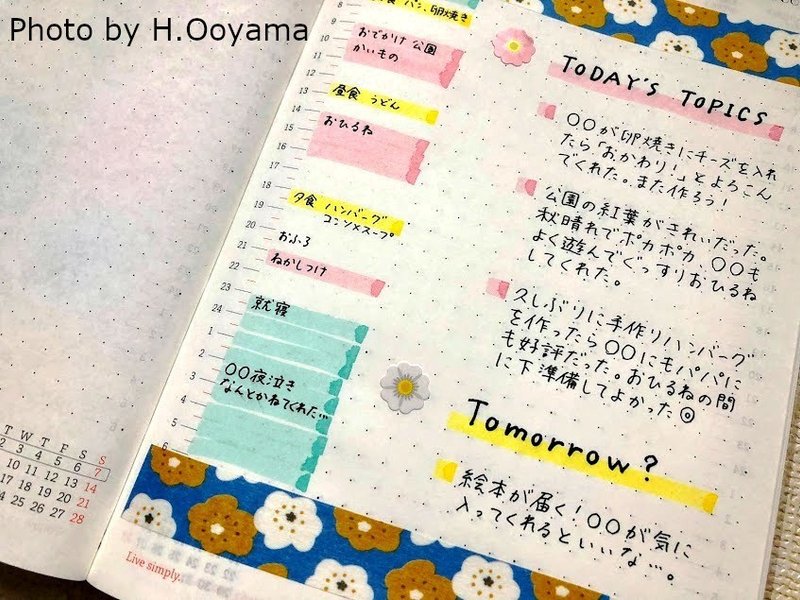 Photo by H.Ooyama
8
食 パン、卵焼き
9
10
おでかけ 公園
かいもの
11
12
昼食 うどん
13
14
おひるね
15
16
17
18
夕食 ハンバーグ
コンソメスープ
19
20
おふろ
21
ねかしつけ
22
23
24
就寝
1
2
3
〇〇夜泣き
なんとかねてくれた…
4
5
6
T W T F S S
2 3 4 5 6 7
10 11 12 13 14
17 18 19 20 21
24 25 26 27 28
Live simply.
TODAY'S TOPICS
〇〇が卵焼きにチーズを入れ
たら「おかわり!」とよろこん
でくれた。また作ろう!
公園の紅葉がきれいだった。
秋晴れでポカポカ、〇〇も
よく遊んでぐっすりおひるね
してくれた。
久しぶりに手作りハンバーグ
を作ったら〇〇にもパパに
も好評だった。おひるねの間
に下準備してよかった
Tomorrow?
絵本が届く!〇〇が気に
入ってくれるといいな…。